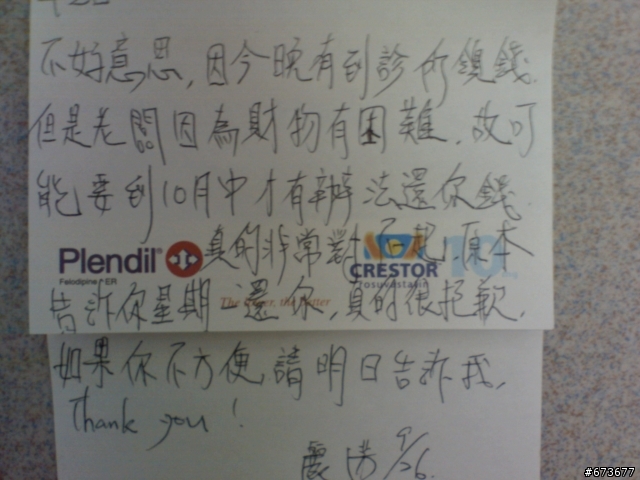 不好意思,因今晚有到診所領錢.
但是老闆因為財物有困難,故可
能要到10月中才有辦法還你錢.
真的非常對不起,原本
Plendil
Felodipine ER
CRESTOR
rosuvastatin
10
告訴你星期一還你,真的很抱歉,
如果你不方便,請明日告訴我,
Thank you!
9/26
#673677